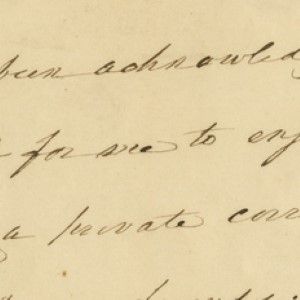 been acknowled
for me to en
a private corr